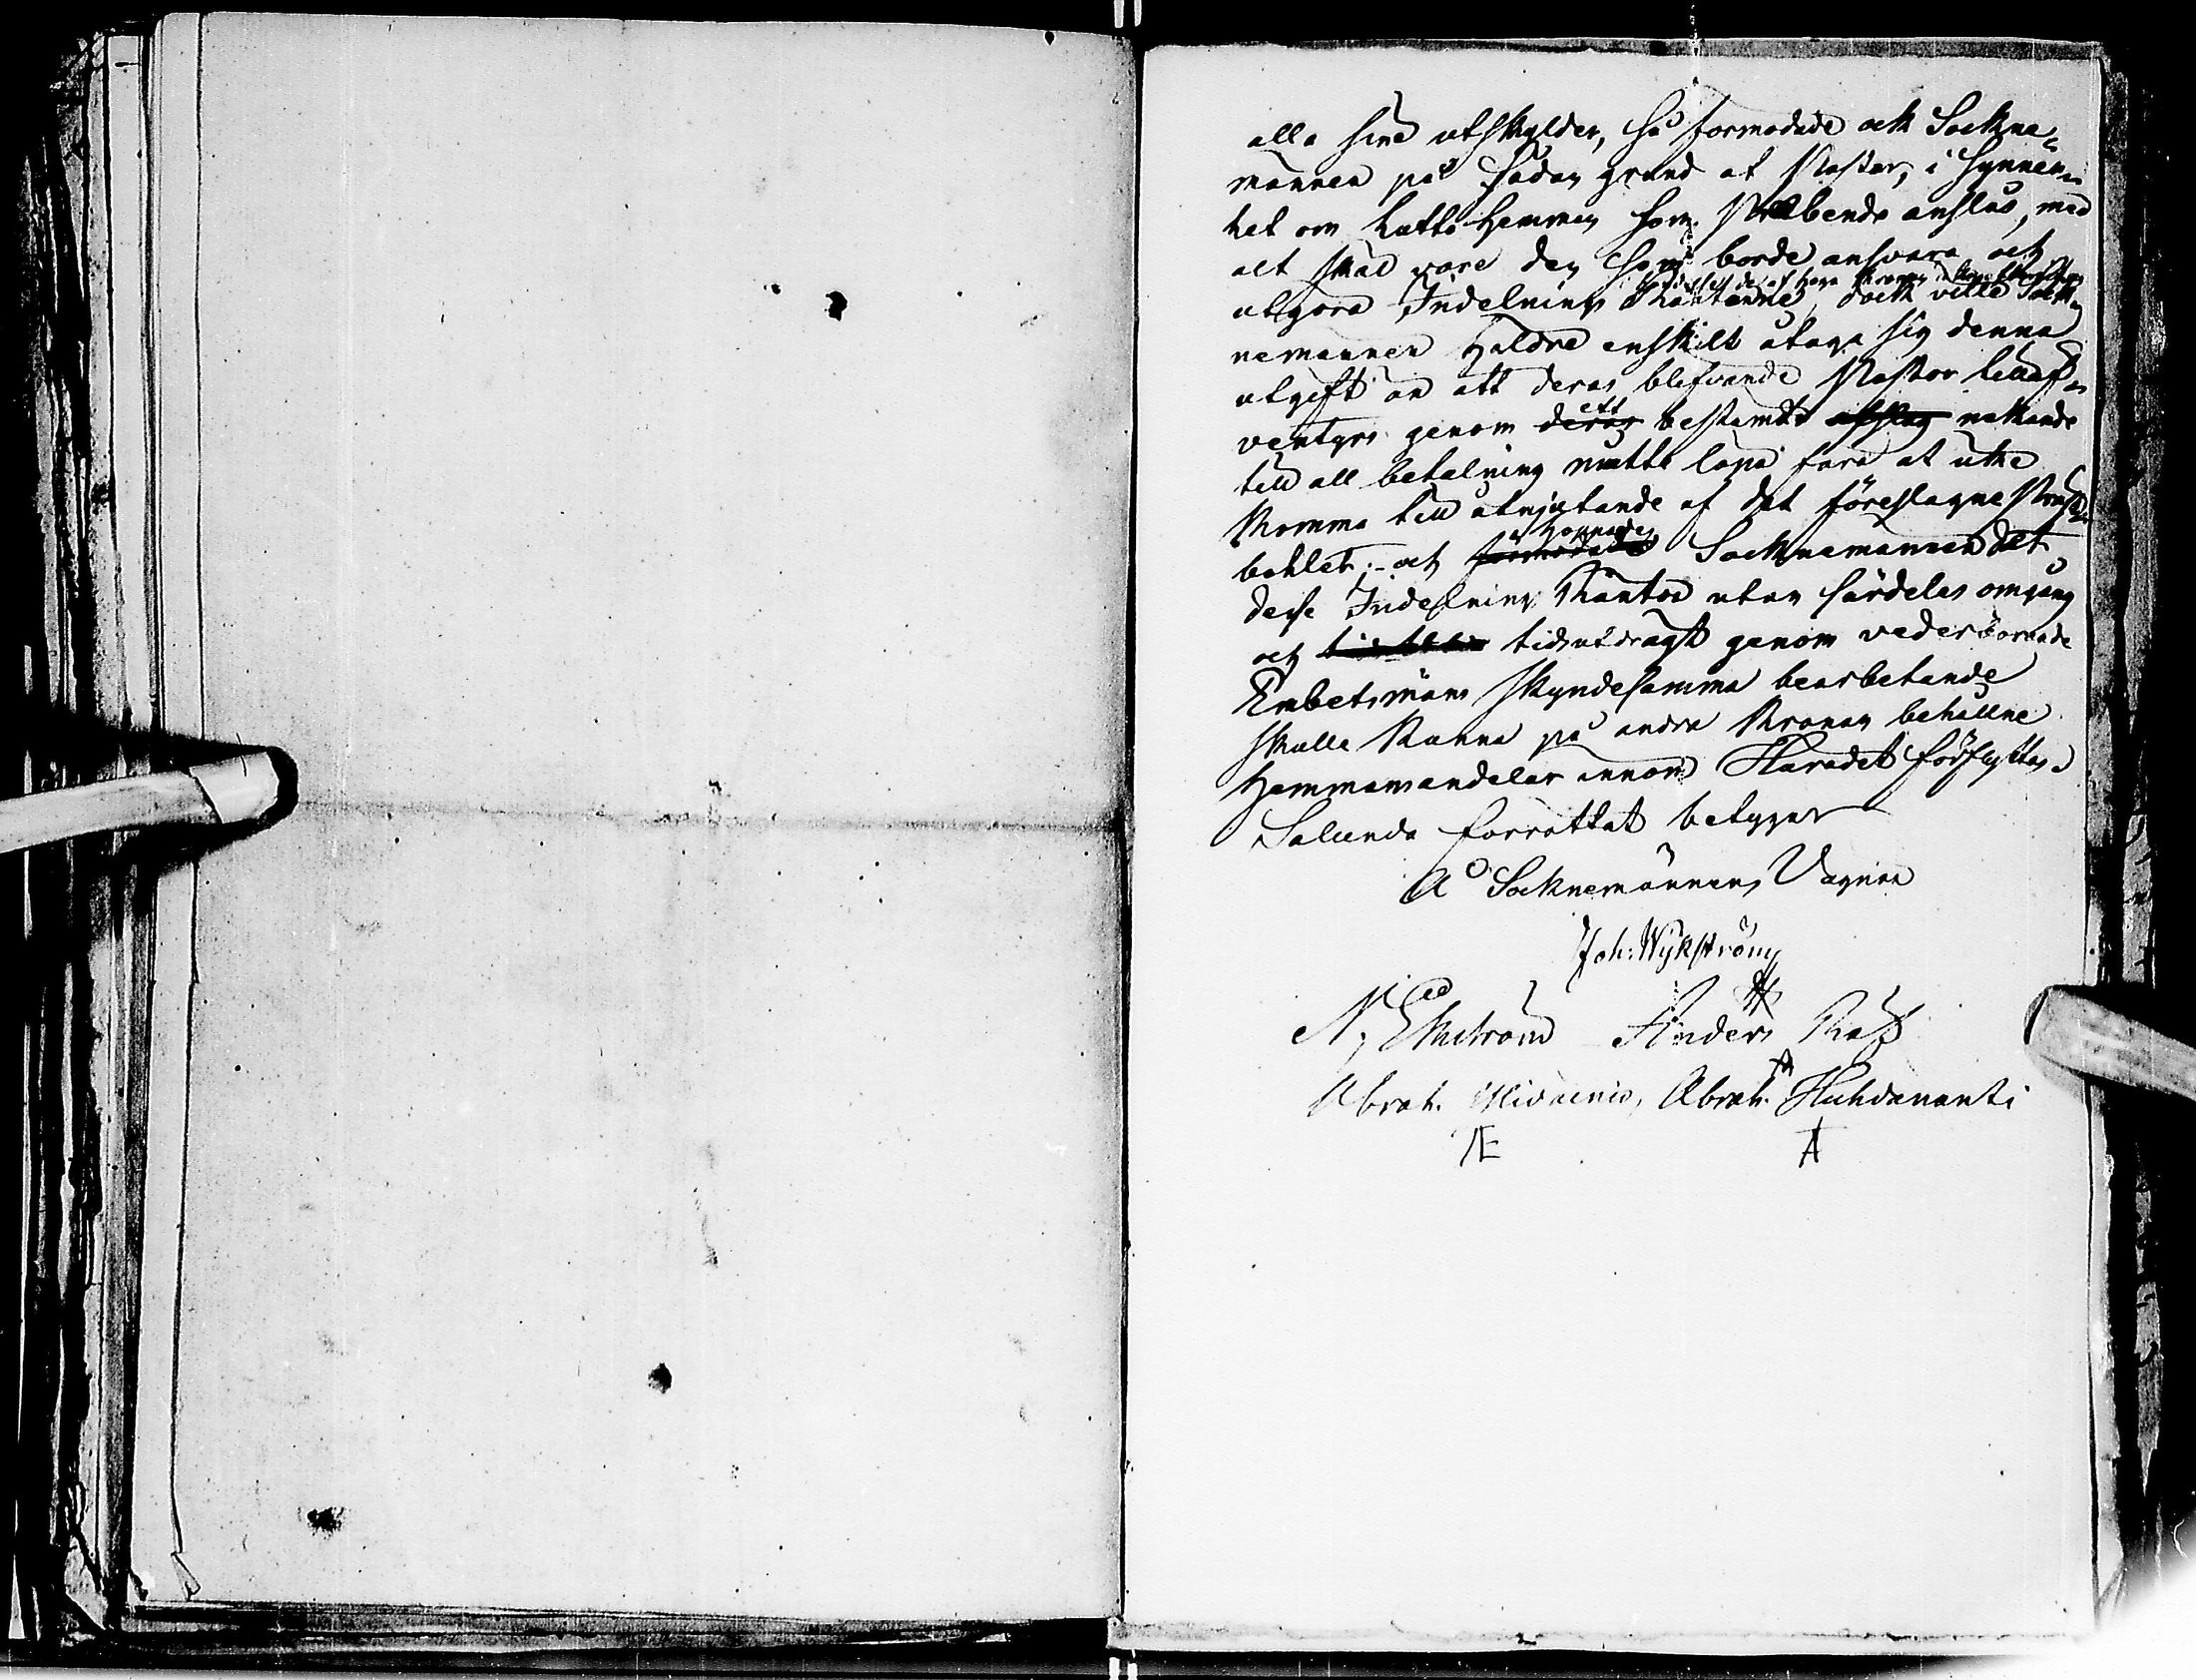 alla sine utskylder, så formodade ock Sockne-
mannen på sådan grund at Pastor, i synner-
het om dette Hemman som Præbende anslås, med
alt skäl vore den som borde ansvara och
utgora Indelnings Räntorne, dock velle Sock-
nemannen Heldre enskilt åtaga sig denna
utgift än att deras blifvande Pastor lika äf-
ventyrs genom ett bestamdt nekande
till all betalning motte löpa fara at icke
komma till åtnjutande af det föreslagne Prest-
bohlet; och hoppades Socknemannen det
desse Indelnings Räntor utan särdeles omgang
och tidsutdragt genom vederbörande
Embetsmäns skyndesamma bearbetande
skulle kunna på andra Kronan behållne
Hemmansandelar innom Haradet förflyttas.
Salunda forrattat betyger
På Socknemännens Vagnar
Joh: Wykström
N. Ekstrom Anders Rass
Abrah. Abrah. Huhdananti
AE A